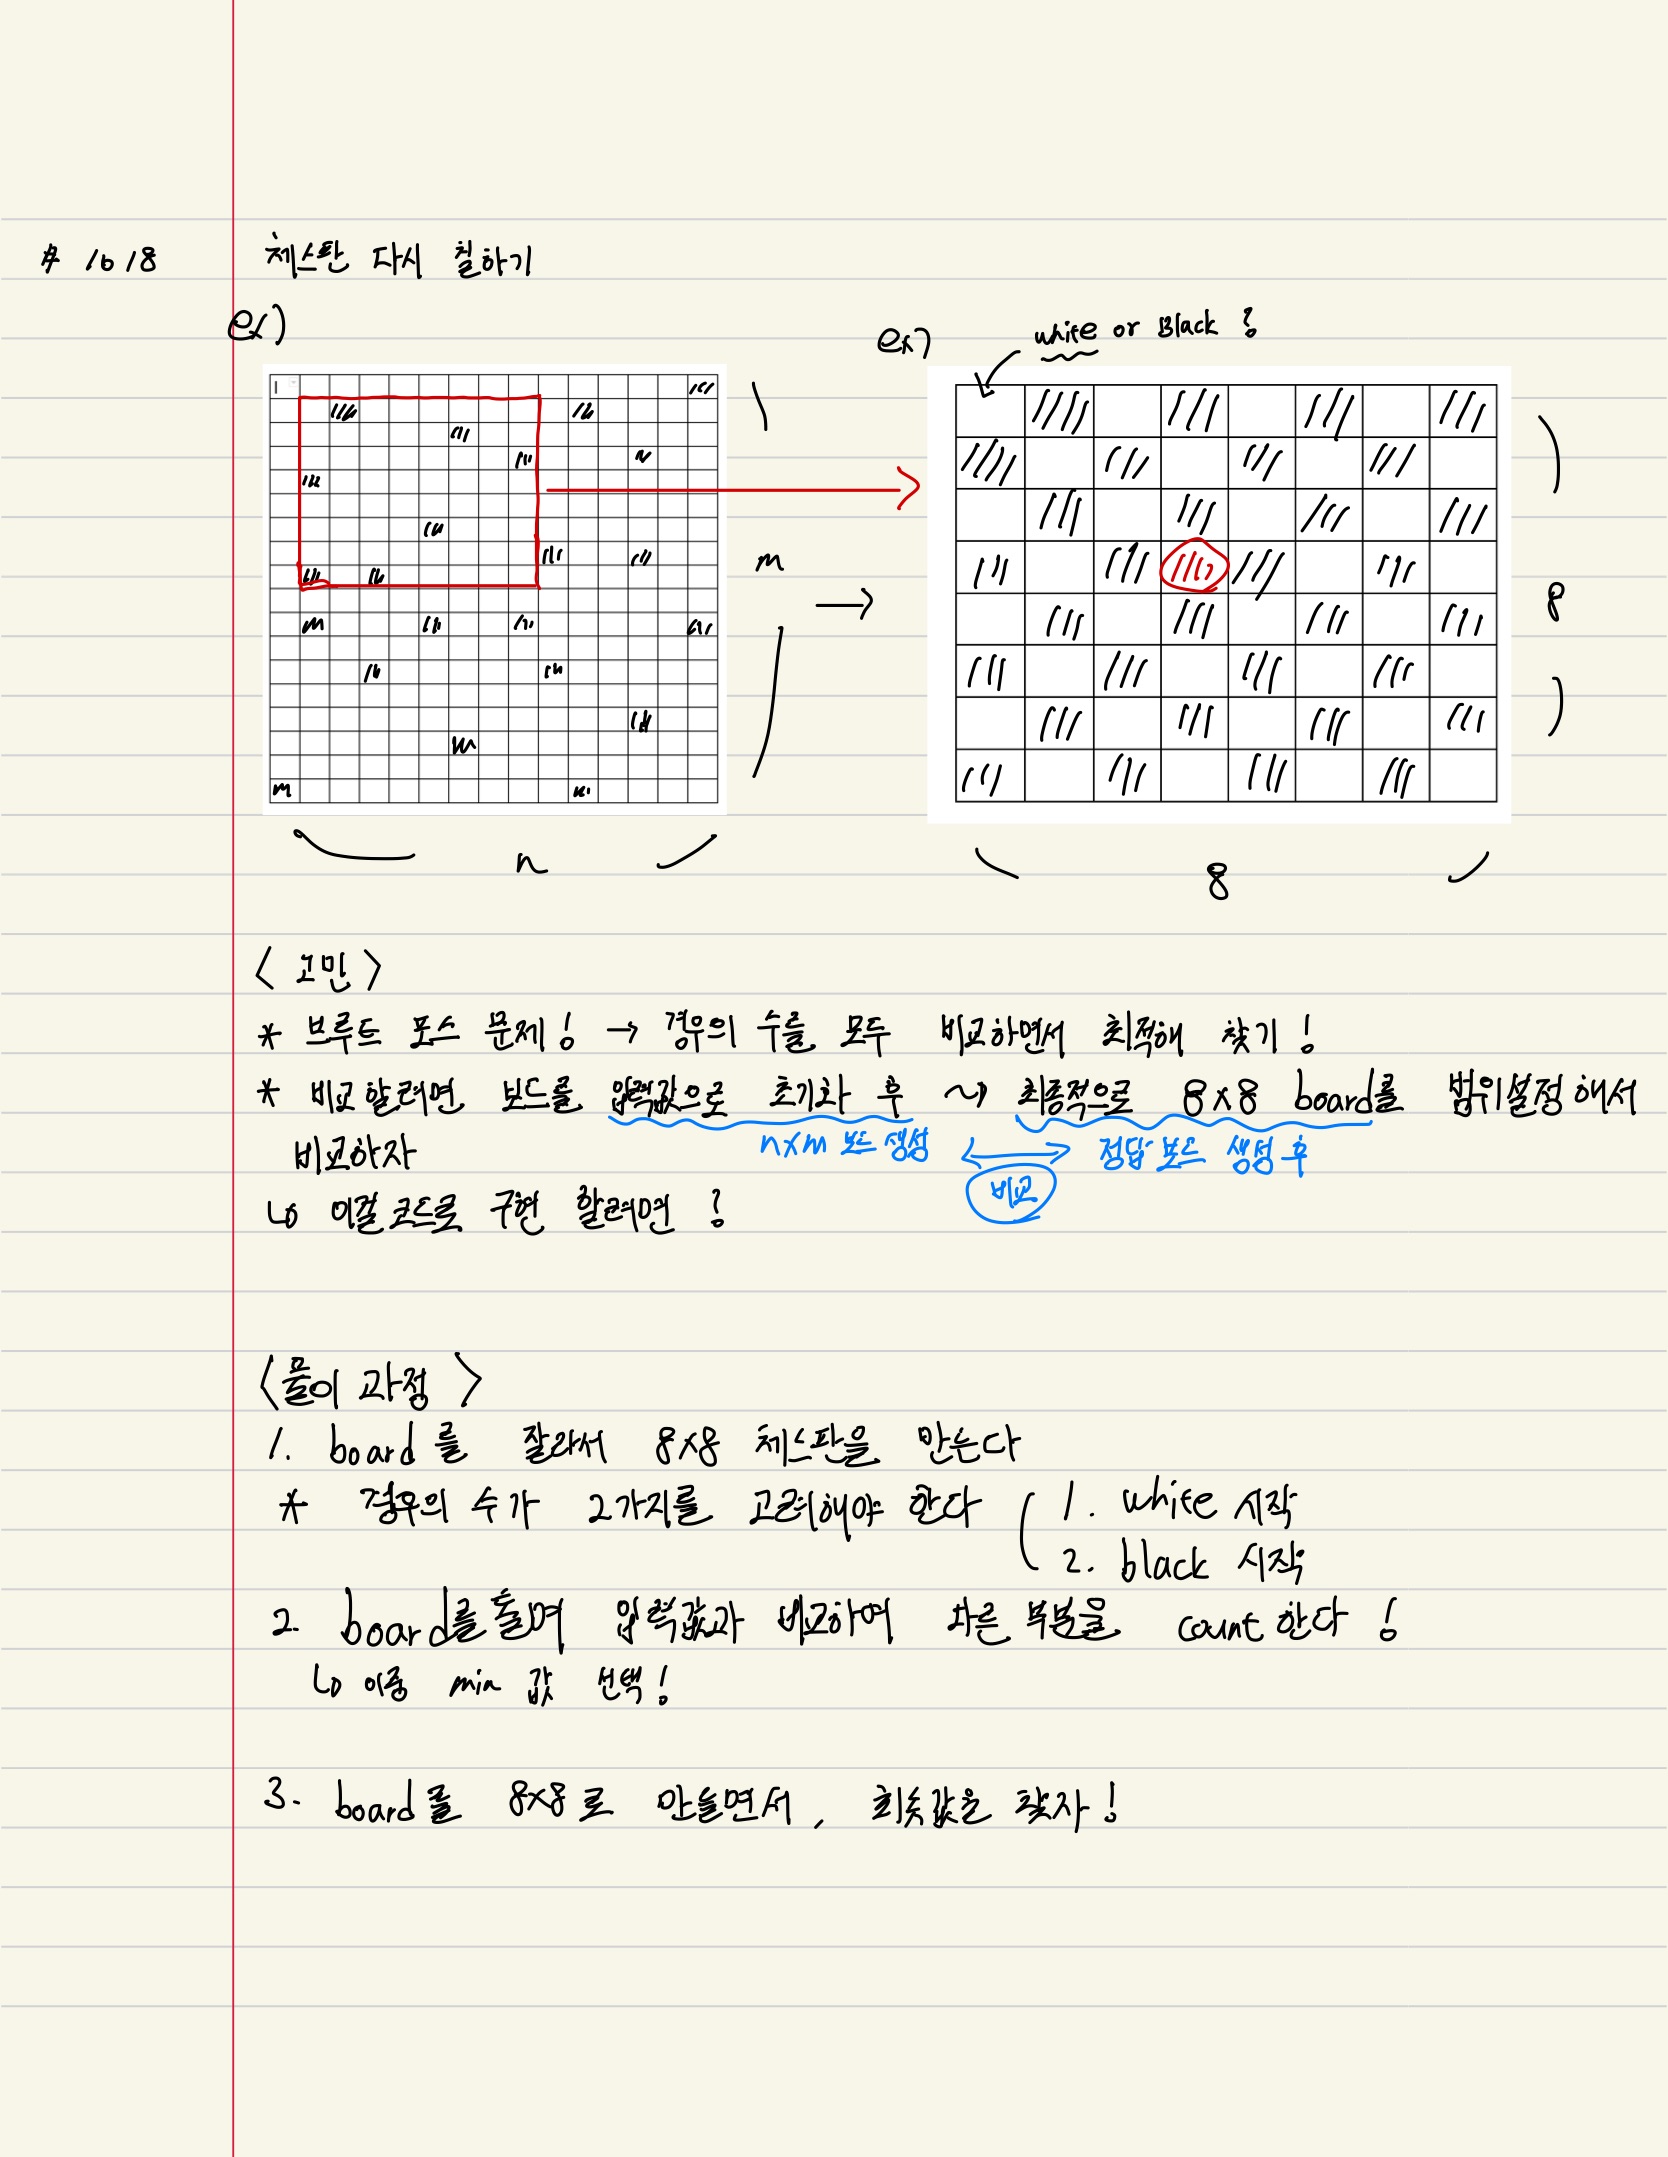 # 1018 체스판 다시 칠하기
ex)
ex)
white or Black ?
m
n
8
8
< 고민 >
* 브루트 포스 문제! → 경우의 수를 모두 비교하면서 최적해 찾기!
* 비교할려면 보드를 입력값으로 초기화 후 ~> 최종적으로 8x8 board를 범위설정해서
nxm 보드 생성 <-> 정답 보드 생성 후
비교하자
비교
↳ 이걸 코드로 구현 할려면?
<풀이 과정>
1. board를 잘라서 8x8 체스판을 만든다
* 경우의 수가 2가지를 고려해야 한다 ( 1. white 시작
2. black 시작
2. board를 돌며 입력값과 비교하여 다른 부분을 count 한다!
↳ 이중 min 값 선택!
3. board를 8x8로 만들면서, 최솟값을 찾자!